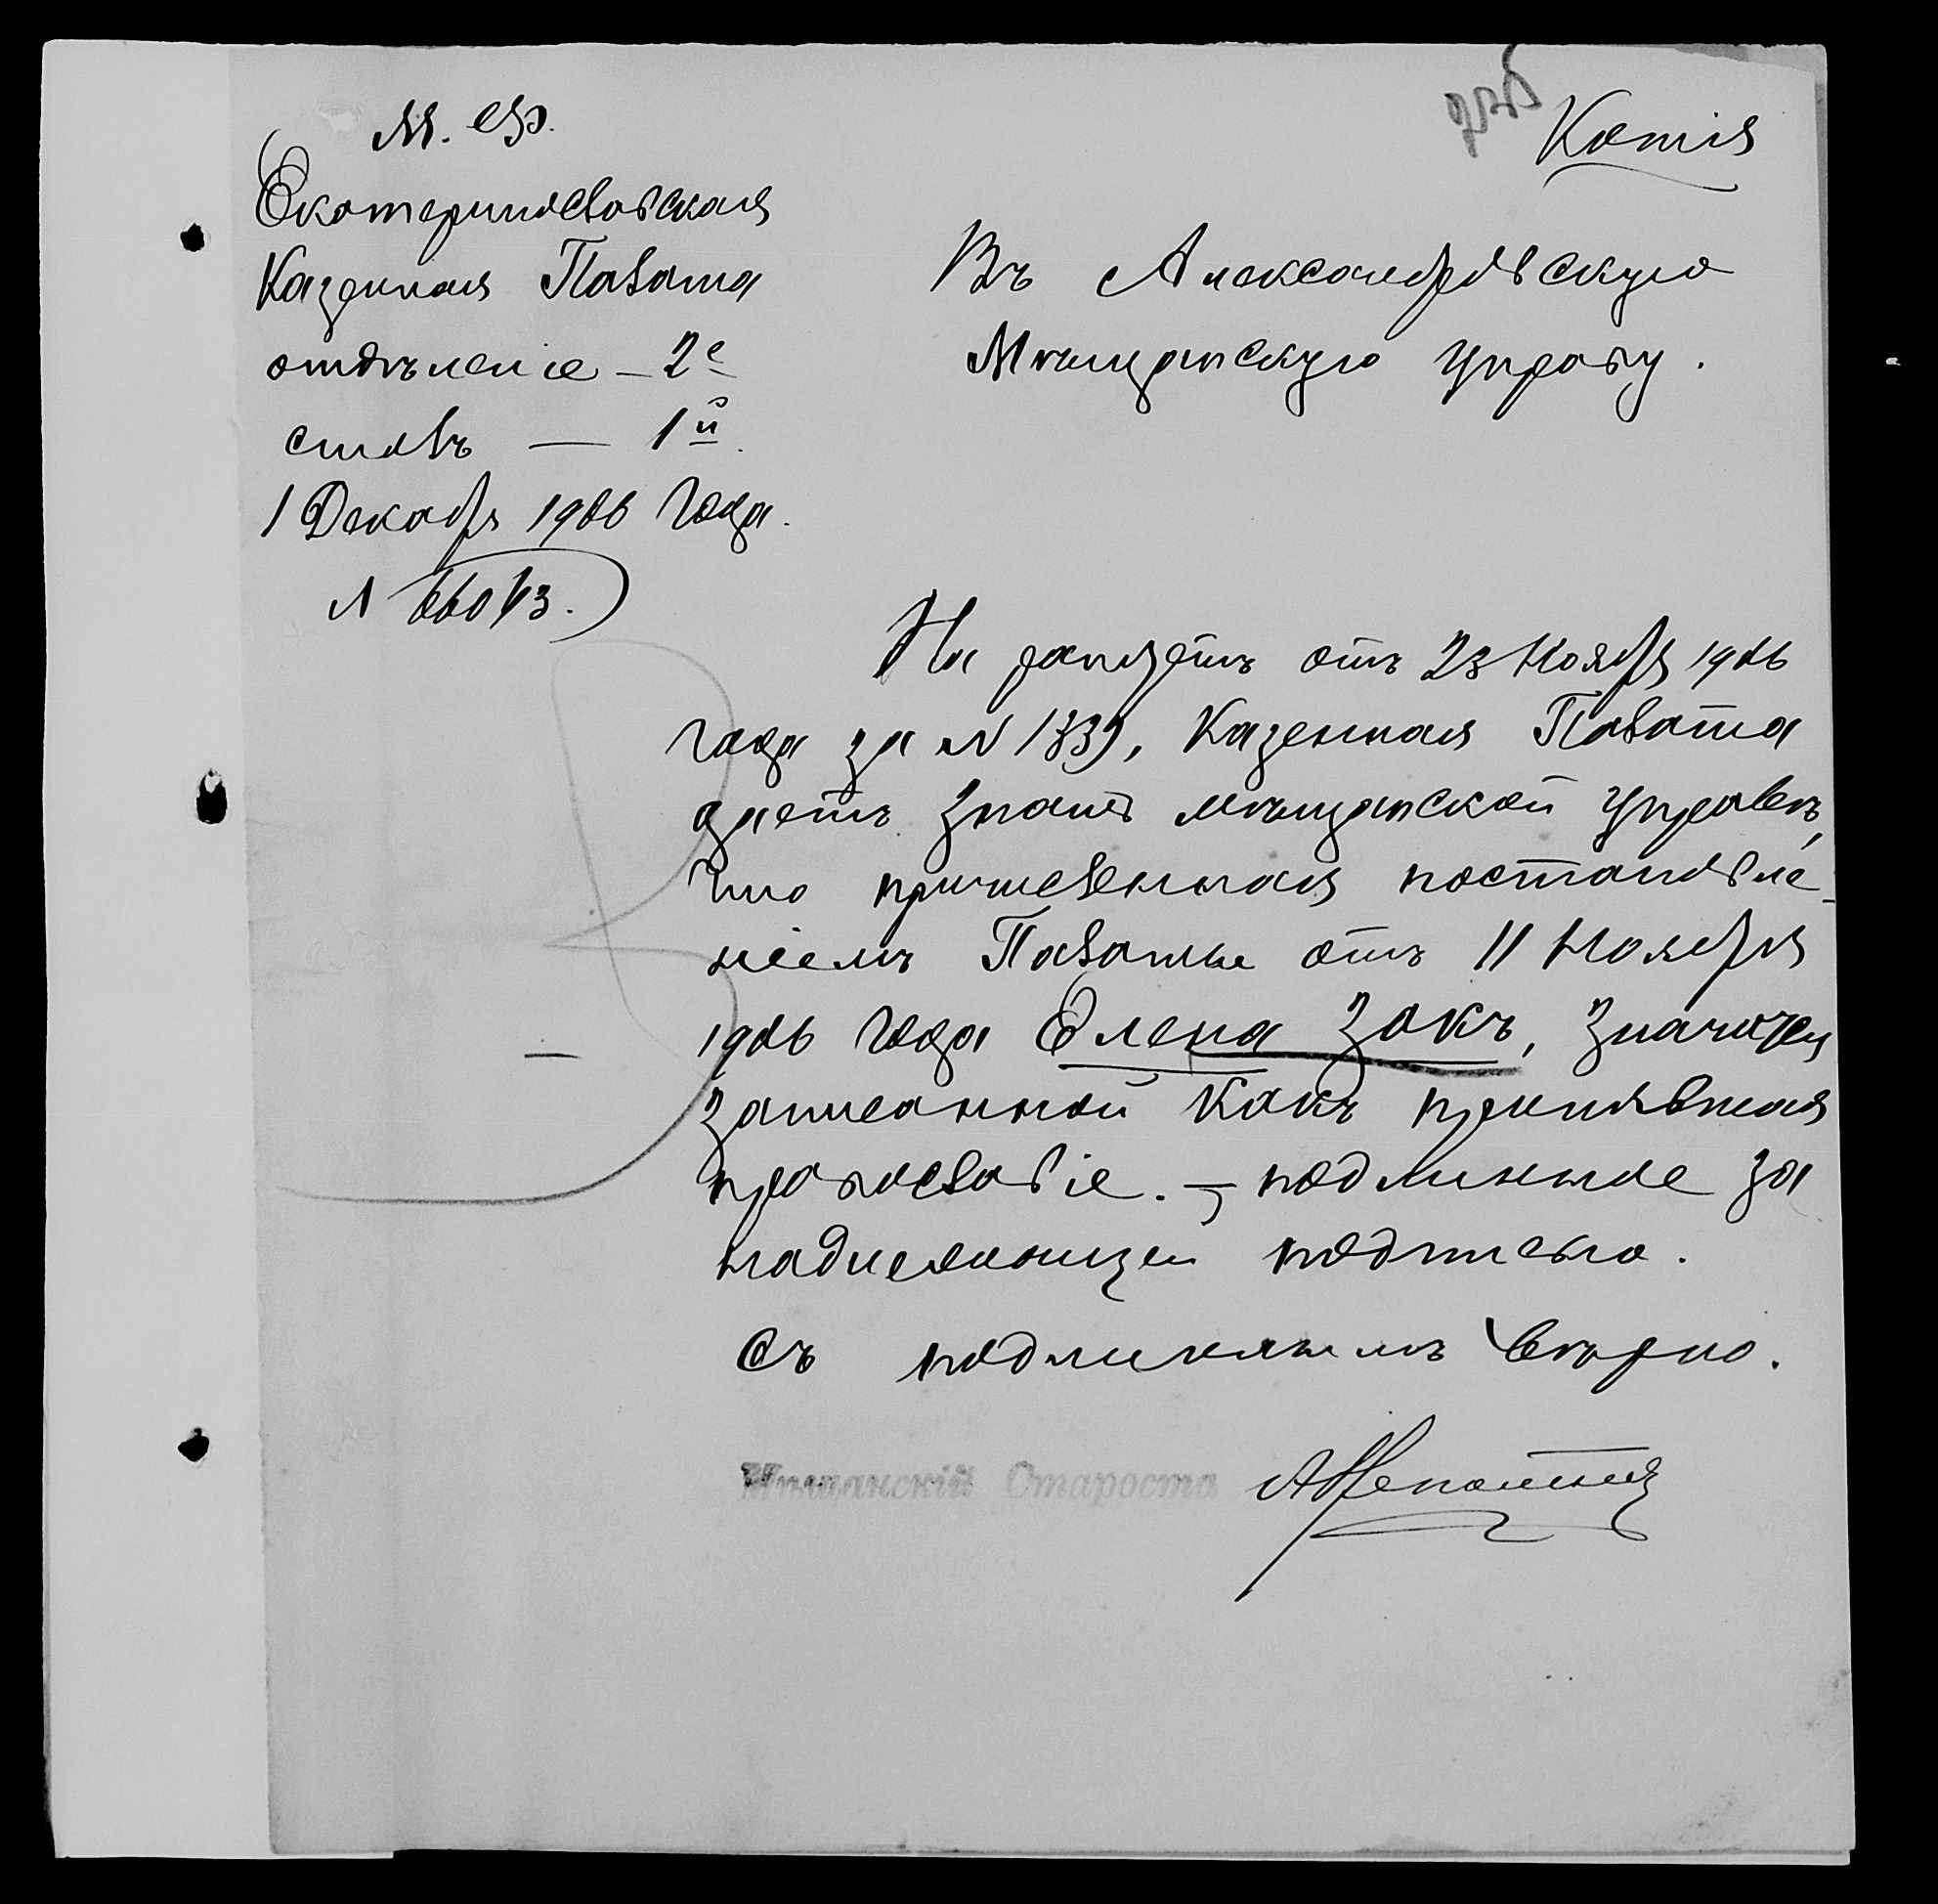 Копія
М. Ф.
Екатеринославская
Казенная Палата
отдѣленіе – 2е
столъ — 1й.
1 Декабр 1906 года.
Въ Александровскую
Мѣщанскую Управу.
На рапортъ отъ 23 Ноября 1906
года за N 1339, Казенная Палата
даетъ знать мѣщанской управѣ,
что причисленная постановле-
ніемъ Палаты отъ 11 Ноября
1906 года Елена Закъ, значится
записанной какъ принявшая
православіе. – подлинное за
надлежащей подписью.
Съ подлиннымъ вѣрно.
Мѣщанскій Староста